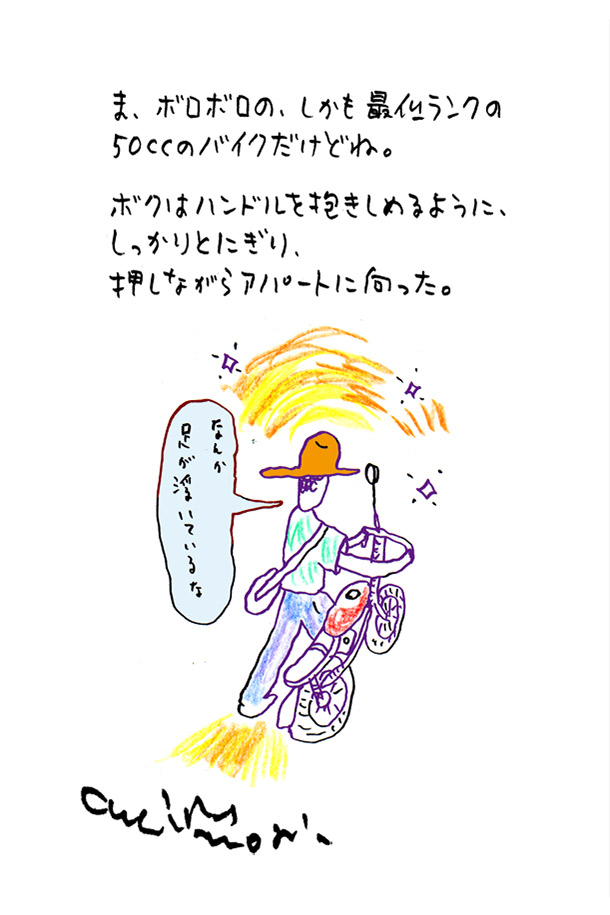 ま、ボロボロの、しかも最低ランクの
50ccのバイクだけどね。
ボクはハンドルを抱きしめるように、
しっかりとにぎり、
押しながらアパートに向った。
なんか
足が浮いているな